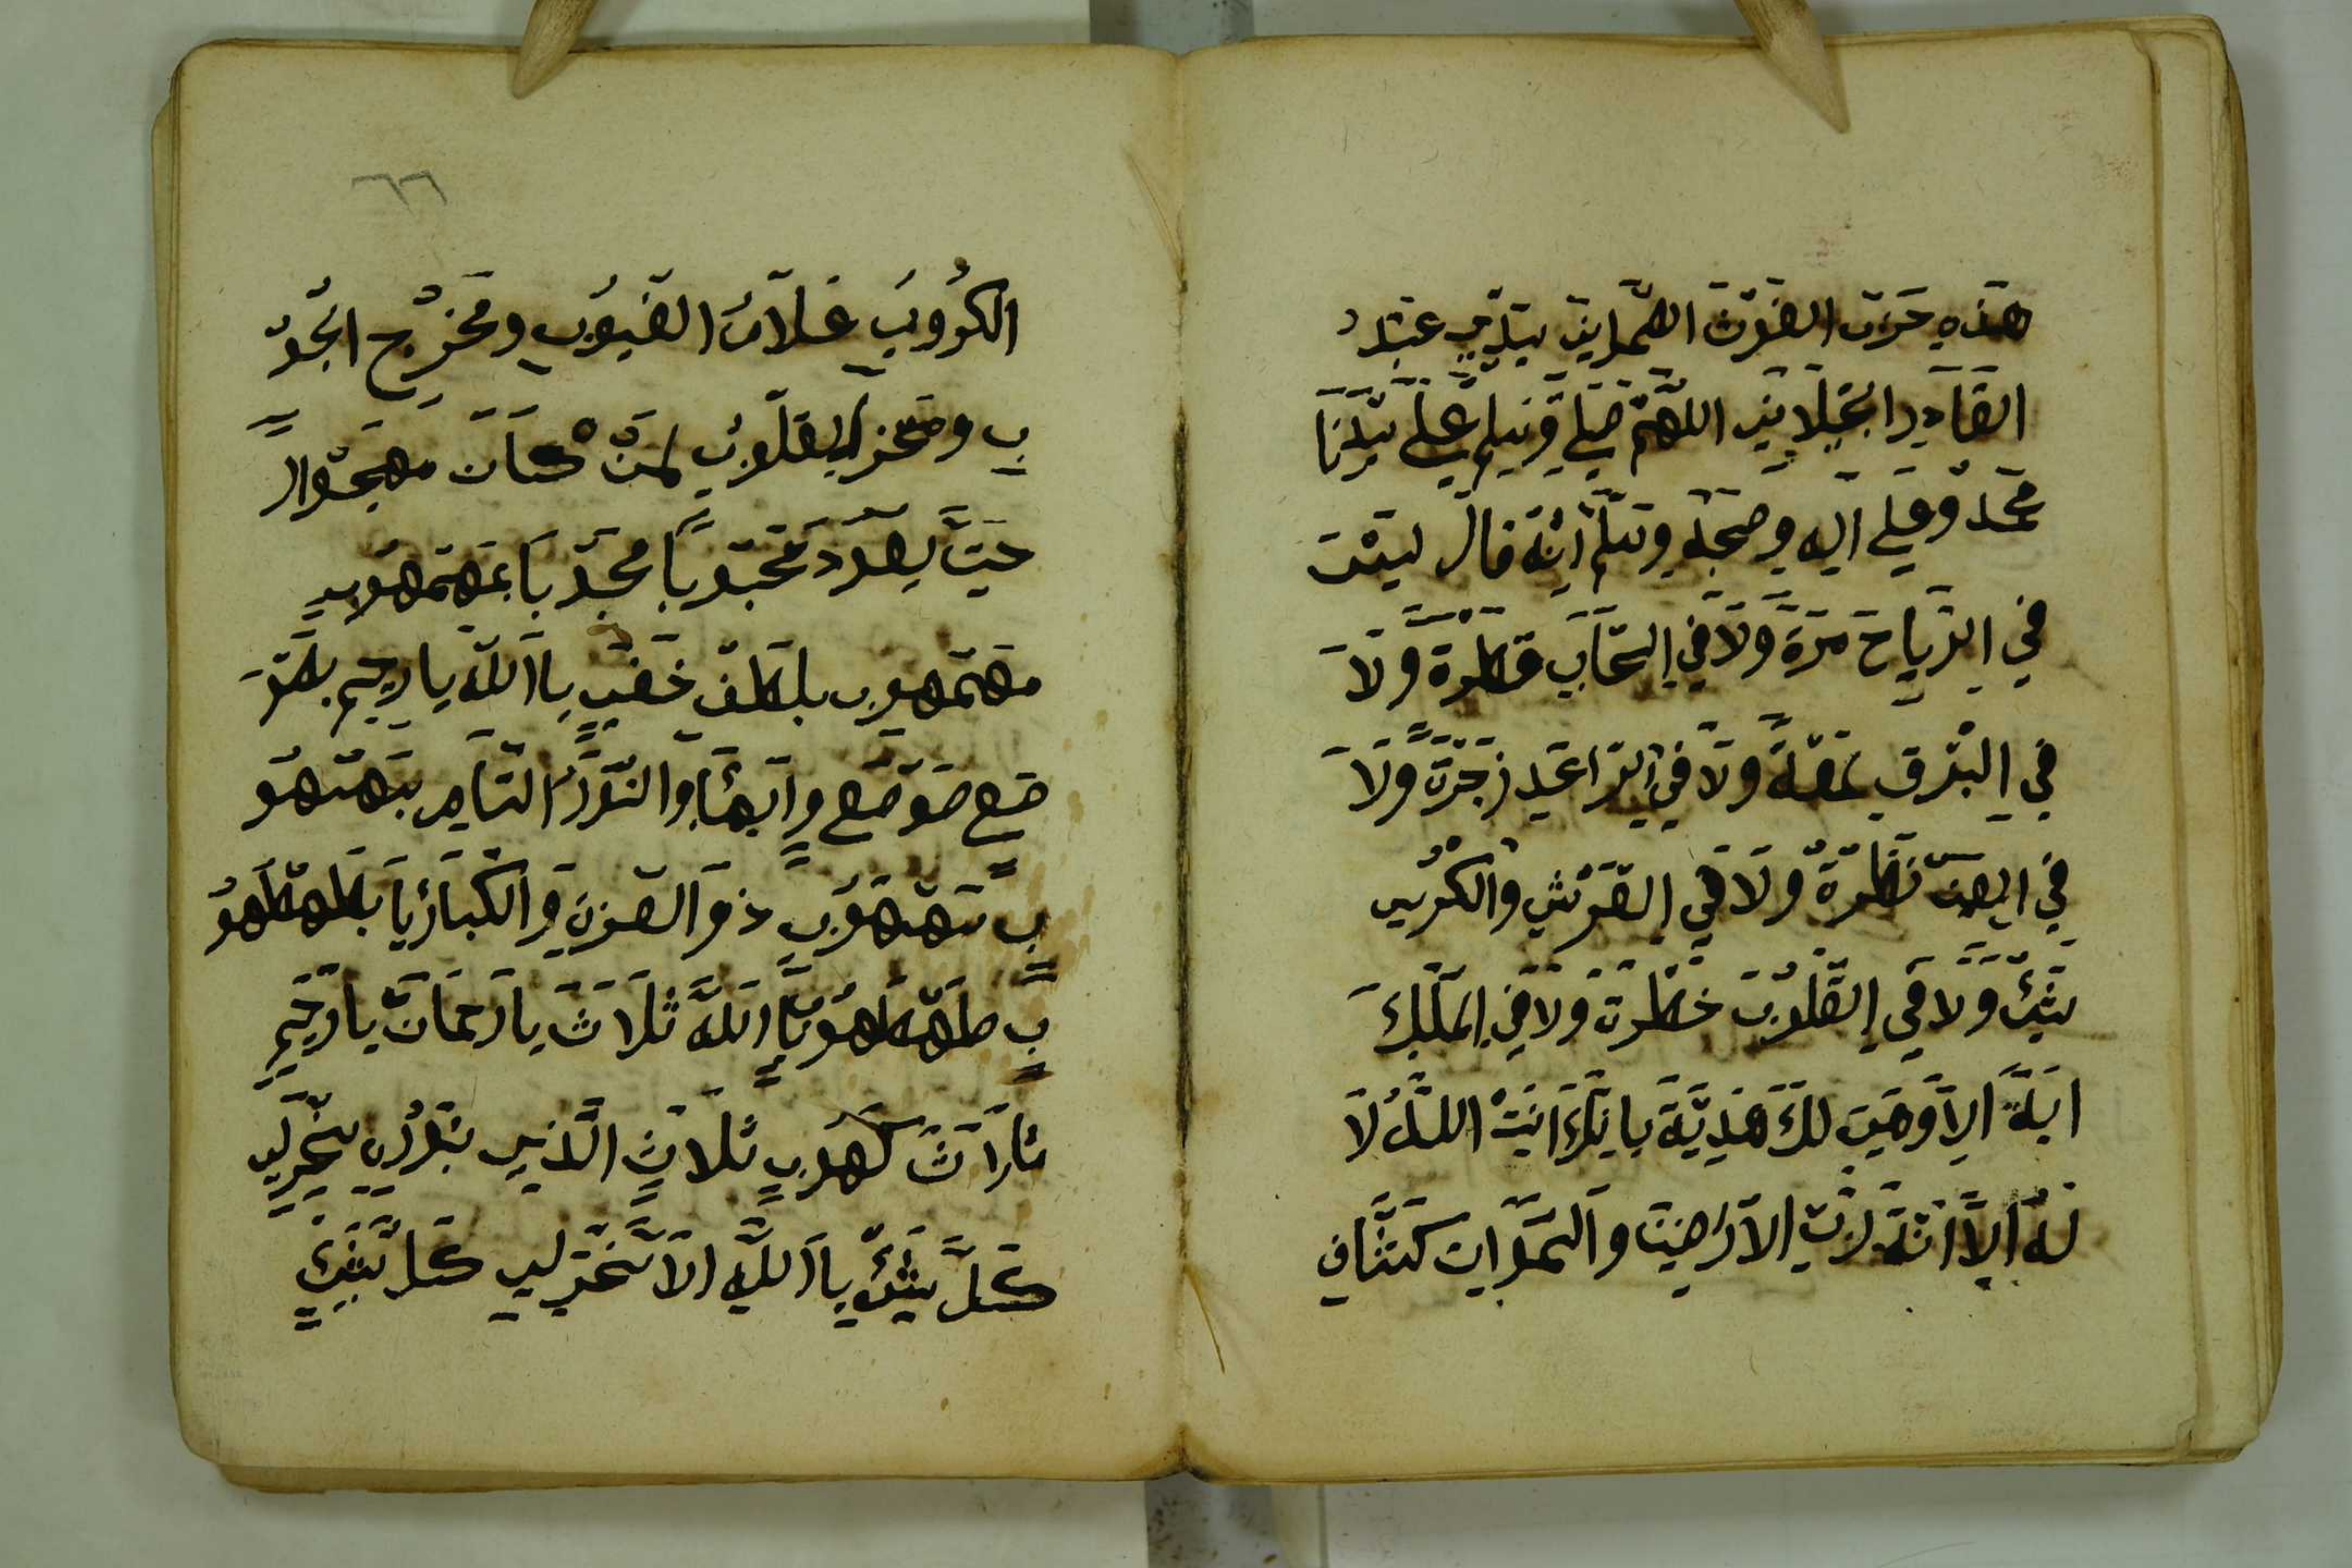 هذه حزب الغوث الصمداني سيدي عبد
القادر الجيلاني اللهم صلي وسلم علي سيدنا
محمد وعلي اله وصحبه وسلم انه قال ليست
في الرياح مرة ولا في السحاب قطرة ولا
في البرق لمعة ولا في الرّاعد زجرة ولا
في نظرة ولا في العرش والكرسي
شيئ ولا في القلوب خطرة ولا في الملك
اية الا وهي لك يا انت الله لا
له الا انت رب الارضين والسموات كشاف
٦٦
الكروب علام الغيوب ومخرج الجو
ب القلوب لمن كان مهجوا
حتي يعود محبوبا محبوبا بمهمهوب
مهمهوب بلطف خفي يا الله يا رحيم
صع صوصع والبهاء والنور التام بسهسهو
ب سهسهوب ذو العز والكبريا بطهطهو
ب طهطهوب يا الله ثلاث يا رحمان يا رحيم
ثلاث كهوب ثلاث الذي بنور سخرلي
كل شيئ يا الله الا سخرلي كل شيئ